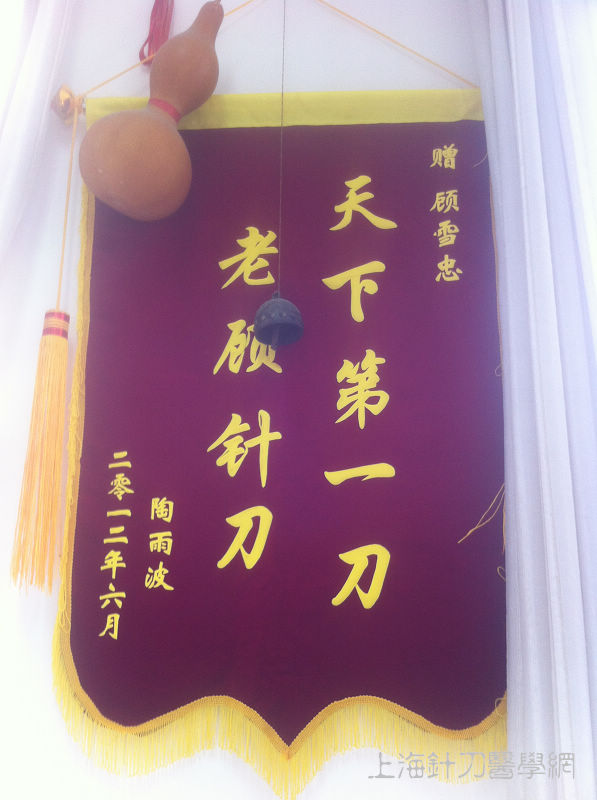 赠 顾雪忠
天下第一刀
老顾针刀
陶雨波
二零一二年六月
上海針刀醫學網